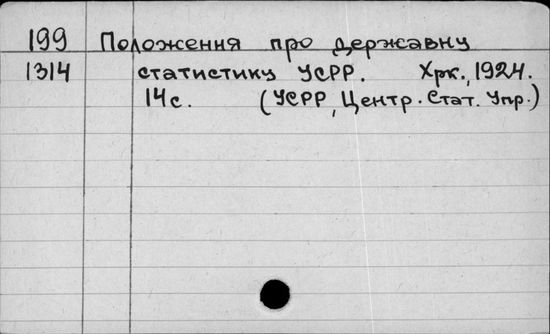 199 Положення про державну
1314 статистику УСРР. Хрк., 1924.
14 с. (УСРР, Центр. Стат. Упр.)